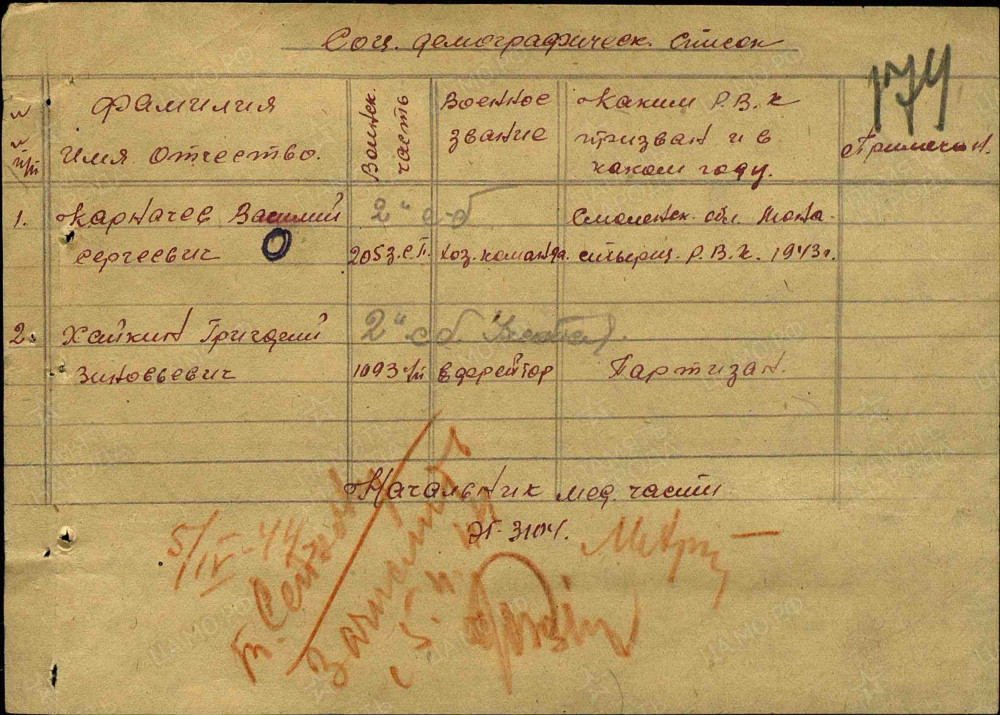 Соц. демографическ. список
174
№
п/п
Фамилия
Имя Отчество.
Воинск.
часть
Военное
звание
Каким Р.В.К
призван и в
каком году.
Примечан.
1. Карпачев Василий 2" сб Смоленск. обл. Мона-
Сергеевич 205 з.с.п. хоз. команда. стырщ. Р.В.К. 1943 г.
2. Хайкин Григорий 2" сб.
Зиновьевич 1093 п/п ефрейтор Партизан.
Начальник мед. части
ЭГ-3104.
5/IV-44
т.
Зачислить
с 5.